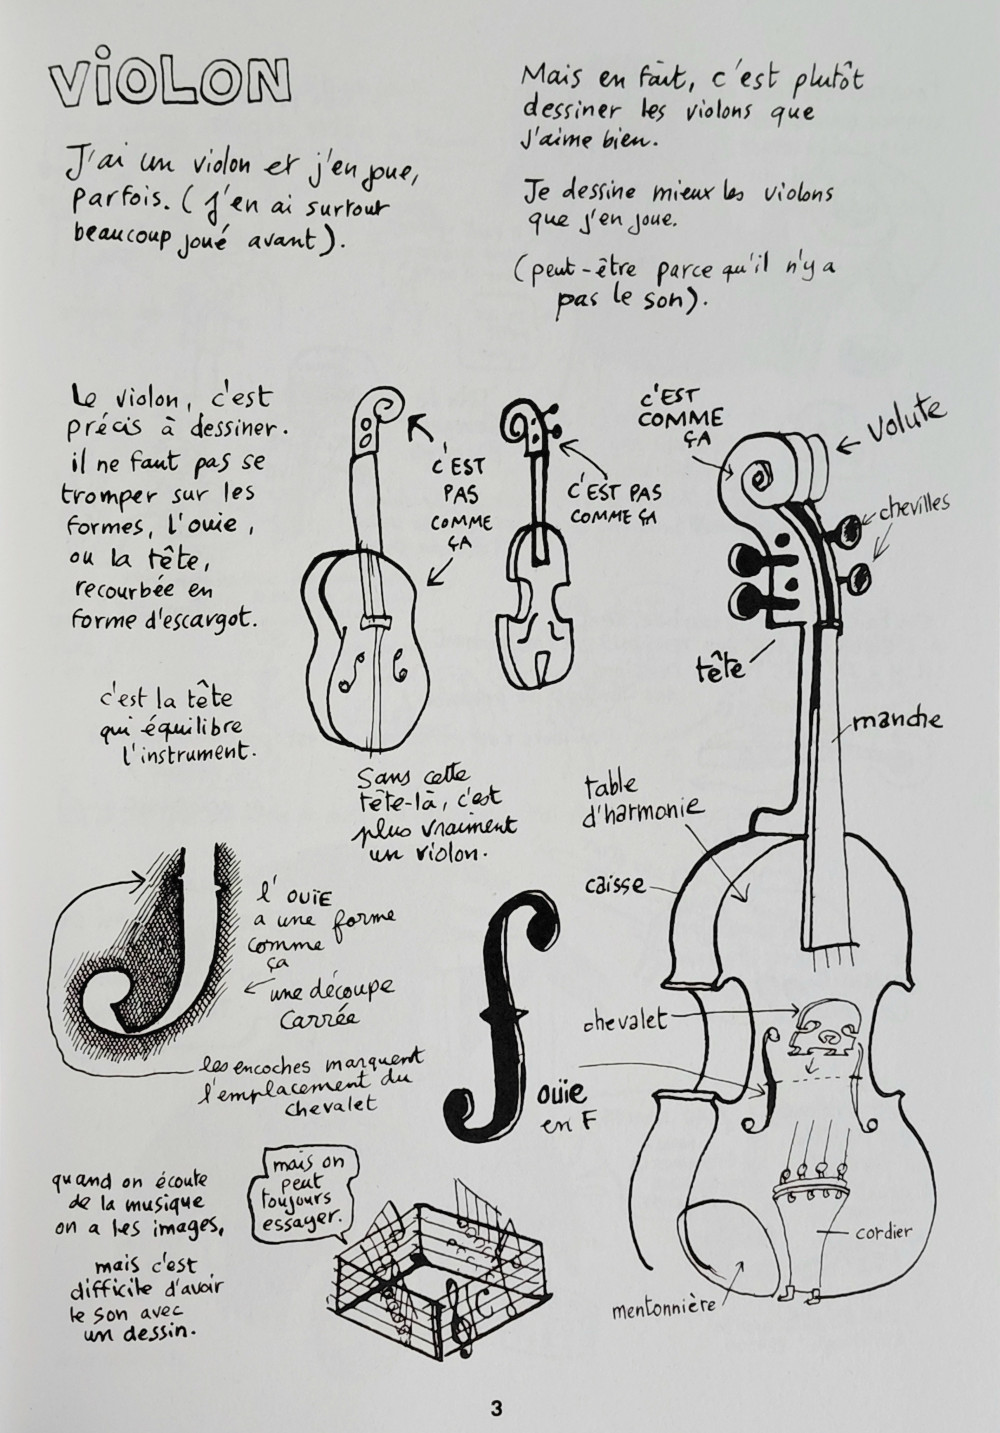 VIOLON
J'ai un violon et j'en joue,
parfois. (j'en ai surtout
beaucoup joué avant).
Mais en fait, c'est plutôt
dessiner les violons que
j'aime bien.
Je dessine mieux les violons
que j'en joue.
(peut-être parce qu'il n'y a
pas le son).
Le violon, c'est
précis à dessiner.
il ne faut pas se
tromper sur les
formes, l'ouie,
ou la tête,
recourbée en
forme d'escargot.
c'est la tête
qui équilibre
l'instrument.
C'EST
PAS
COMME
ÇA
C'EST PAS
COMME ÇA
C'EST
COMME
ÇA
volute
chevilles
tête
manche
Sans cette
tête-là, c'est
plus vraiment
un violon.
table
d'harmonie
caisse
l'ouïe
a une forme
comme
ça
une découpe
carrée
les encoches marquent
l'emplacement du
chevalet
chevalet
ouïe
en F
cordier
mentonnière
quand on écoute
de la musique
on a les images,
mais c'est
difficile d'avoir
le son avec
un dessin.
mais on
peut
toujours
essayer.
3